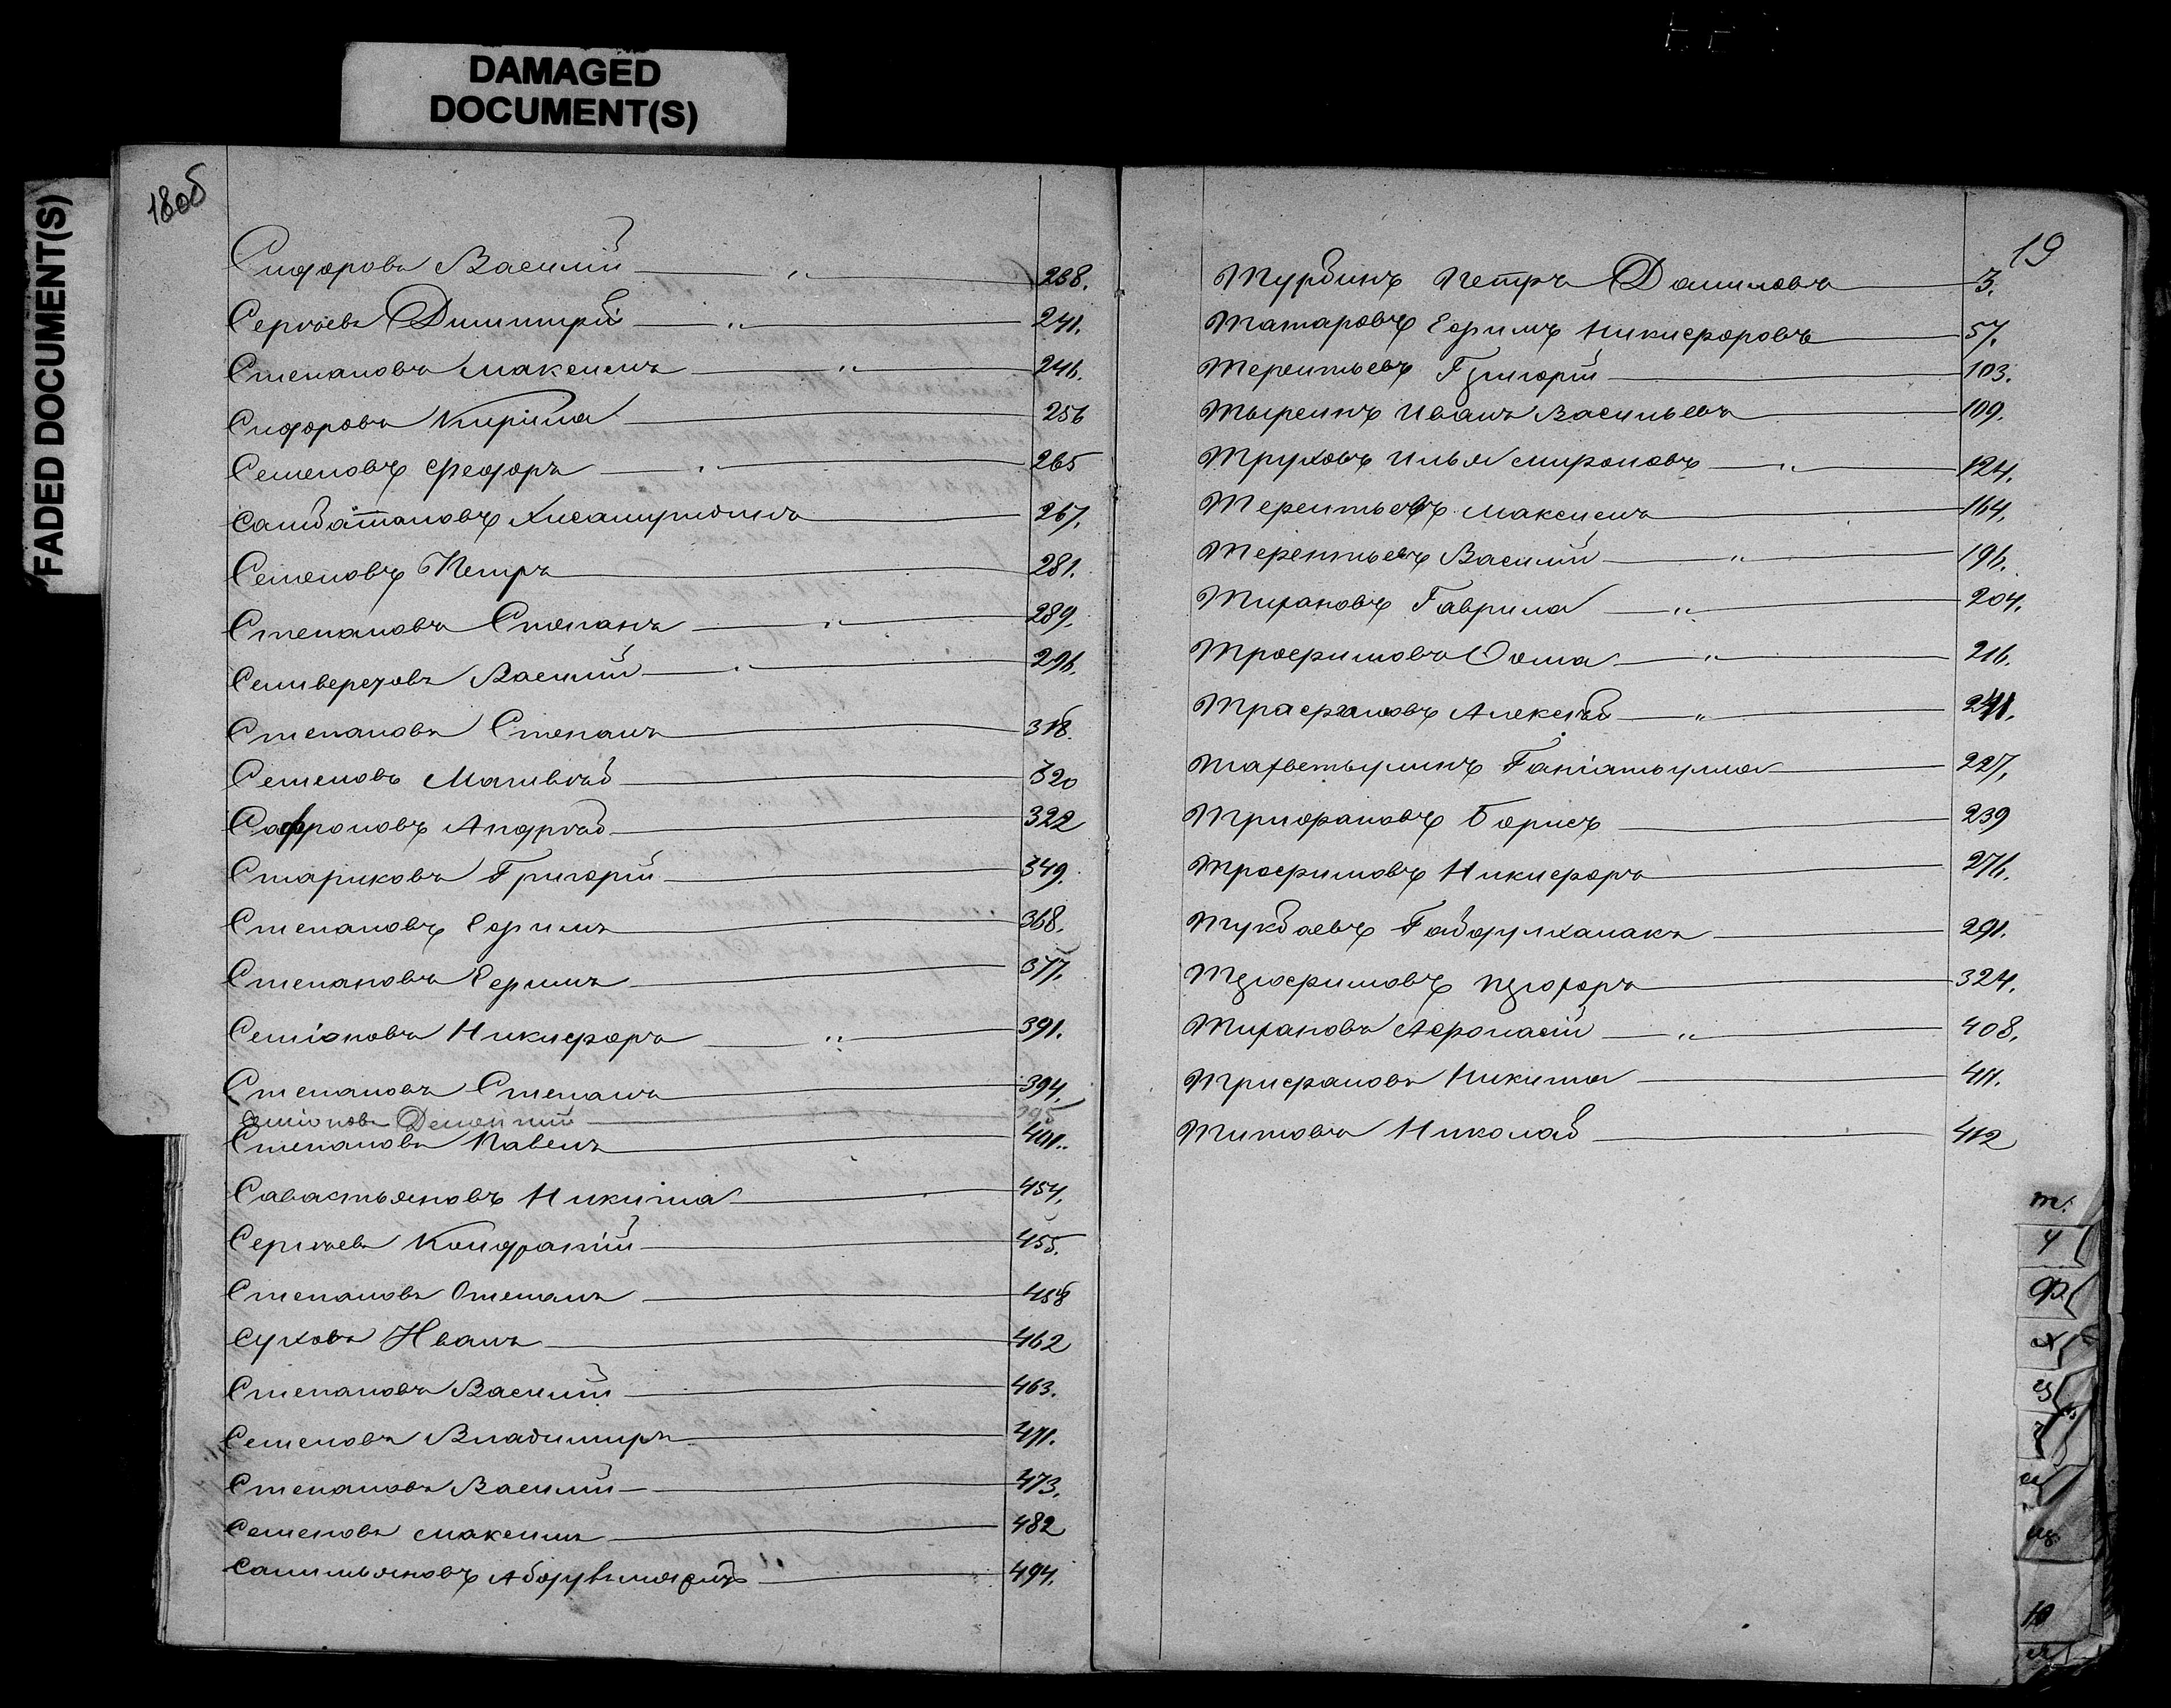 DAMAGED
DOCUMENT(S)
FADED DOCUMENT(S)
18об
Сидоровъ Василий — " — 238.
Сергѣевъ Димитрій — " — 241.
Степановъ Максимъ — " — 246.
Сидоровъ Кирила — 256
Семеновъ Федоръ — " — 265
Саибаталовъ Хисамутдинъ — 267.
Семеновъ Петръ — 281.
Степановъ Степанъ — " — 289.
Селиверстовъ Василий — " — 296.
Степановъ Степанъ — 318.
Семеновъ Матвѣй — 320
Сафроновъ Андрей — 322
Стариковъ Григорій — 349.
Степановъ Ефимъ — 368.
Степановъ Ефимъ — 377.
Семіоновъ Никифоръ — " — 391.
Степановъ Степанъ — 394.
Семіоновъ Дементий — 395
Степановъ Павелъ — 401.
Савастьяновъ Никита — 454.
Сергѣевъ Кондратій — 455.
Степановъ Степанъ — 458
Суховъ Иванъ — 462
Степановъ Василий — 463.
Семеновъ Владимиръ — 471.
Степановъ Василий — 473.
Семеновъ Максимъ — 482
Салимьяновъ — 494.
19
Турбинъ Петръ Даниловъ — 3.
Татаровъ Ефимъ Никифоровъ — 57.
Терентьевъ Григорій — 103.
Тыреинъ Иванъ Васильевъ — 109.
Труховъ Илья Мироновъ — " — 124.
Терентьевъ Максимъ — 164.
Терентьевъ Василий — " — 196.
Тихановъ Гаврила — " — 204.
Трофимовъ Фома — " — 216.
Трафимовъ Алексѣй — "
Тахветуллинъ — 227.
Трифановъ Борисъ — 239
Трофимовъ Никифоръ — 276.
Тукбаевъ Габдулханакъ — 291.
Трофимовъ Федоръ — 324.
Тихановъ Афонасій — " — 408.
Трифановъ Никита — 411.
Титовъ Николай — 412
Т.
У
Ф
Х
Ц
Ч
Ш
Щ
Ю
Я